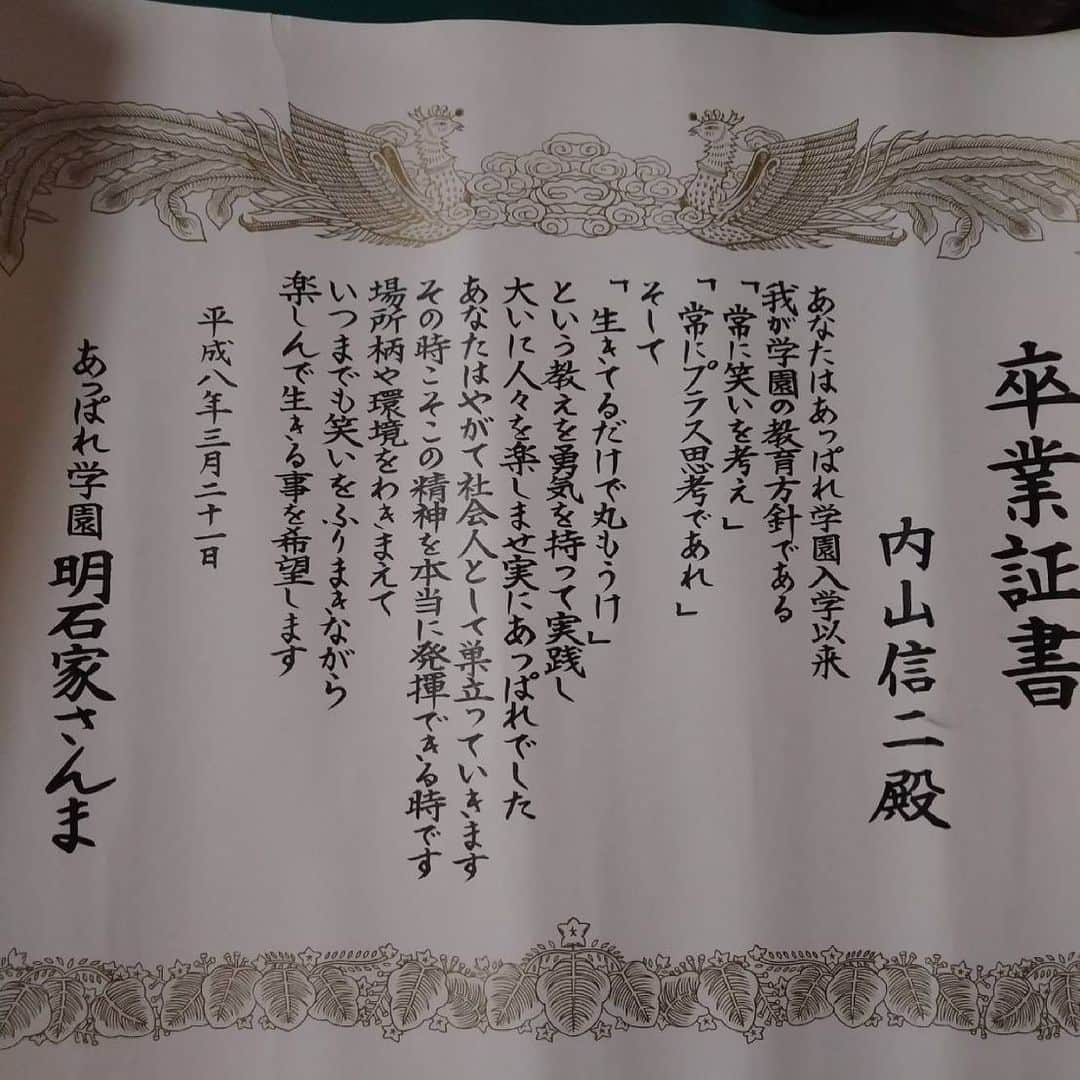 卒業証書
内山信二殿
あなたはあっぱれ学園入学以来
我が学園の教育方針である
「常に笑いを考え」
「常にプラス思考であれ」
そして
「生きてるだけで丸もうけ」
という教えを勇気を持って実践し
大いに人々を楽しませ実にあっぱれでした
あなたはやがて社会人として巣立っていきます
その時こそこの精神を本当に発揮できる時です
場所柄や環境をわきまえて
いつまでも笑いをふりまきながら
楽しんで生きる事を希望します
平成八年三月二十一日
あっぱれ学園 明石家さんま